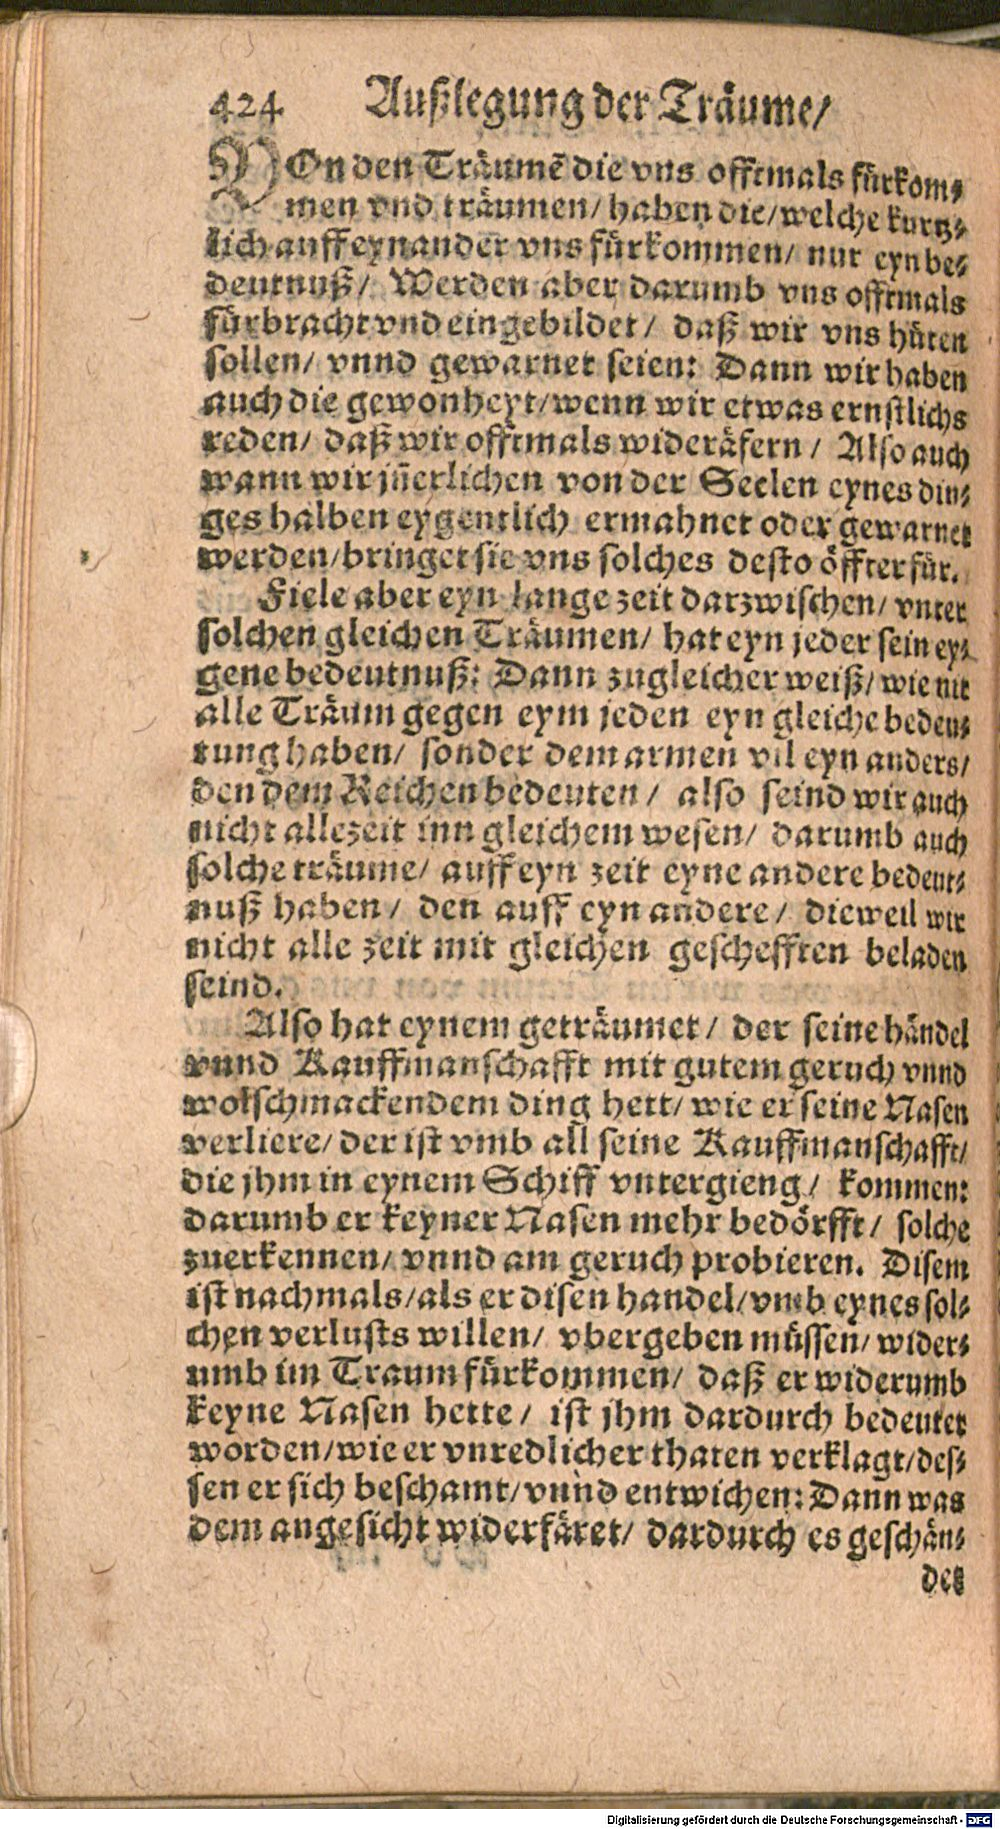 424 Außlegung der Träume/
VOn den Träumẽ die vns offtmals fürkom⸗
men vnd träumen/ haben die/ welche kurtz⸗
lich auff eynander vns fürkommen/ nur eyn be⸗
deutnuß/ Werden aber darumb vns offtmals
fürbracht vnd eingebildet/ daß wir vns hüten
sollen/ vnnd gewarnet seien: Dann wir haben
auch die gewonheyt/ wenn wir etwas ernstlichs
reden/ daß wir offtmals wideräfern/ Also auch
wann wir jñerlichen von der Seelen eynes din⸗
ges halben eygentlich ermahnet oder gewarnet
werden/ bringet sie vns solches desto öffter für.
Fiele aber eyn lange zeit darzwischen/ vnter
solchen gleichen Träumen/ hat eyn jeder sein ey⸗
gene bedeutnuß: Dann zugleicher weiß/ wie nit
alle Träum gegen eym jeden eyn gleiche bedeu⸗
tung haben/ sonder dem armen vil eyn anders/
den dem Reichen bedeuten/ also seind wir auch
nicht allezeit inn gleichem wesen/ darumb auch
solche träume/ auff eyn zeit eyne andere bedeut⸗
nuß haben/ den auff eyn andere/ dieweil wir
nicht alle zeit mit gleichen geschefften beladen
seind.
Also hat eynem geträumet/ der seine händel
vnnd Kauffmanschafft mit gutem geruch vnnd
wolschmackendem ding hett/ wie er seine Nasen
verliere/ der ist vmb all seine Kauffmanschafft/
die jhm in eynem Schiff vntergieng/ kommen:
darumb er keyner Nasen mehr bedörfft/ solche
zuerkennen/ vnnd am geruch probieren. Disem
ist nachmals/ als er disen handel/ vmb eynes sol⸗
chen verlusts willen/ vbergeben müssen/ wider⸗
umb im Traum fürkommen/ daß er widerumb
keyne Nasen hette/ ist jhm dardurch bedeutet
worden/ wie er vnredlicher thaten verklagt/ des⸗
sen er sich beschamt/ vnnd entwichen: Dann was
dem angesicht widerfäret/ dardurch es geschän⸗
det
Digitalisierung gefördert durch die Deutsche Forschungsgemeinschaft - DFG